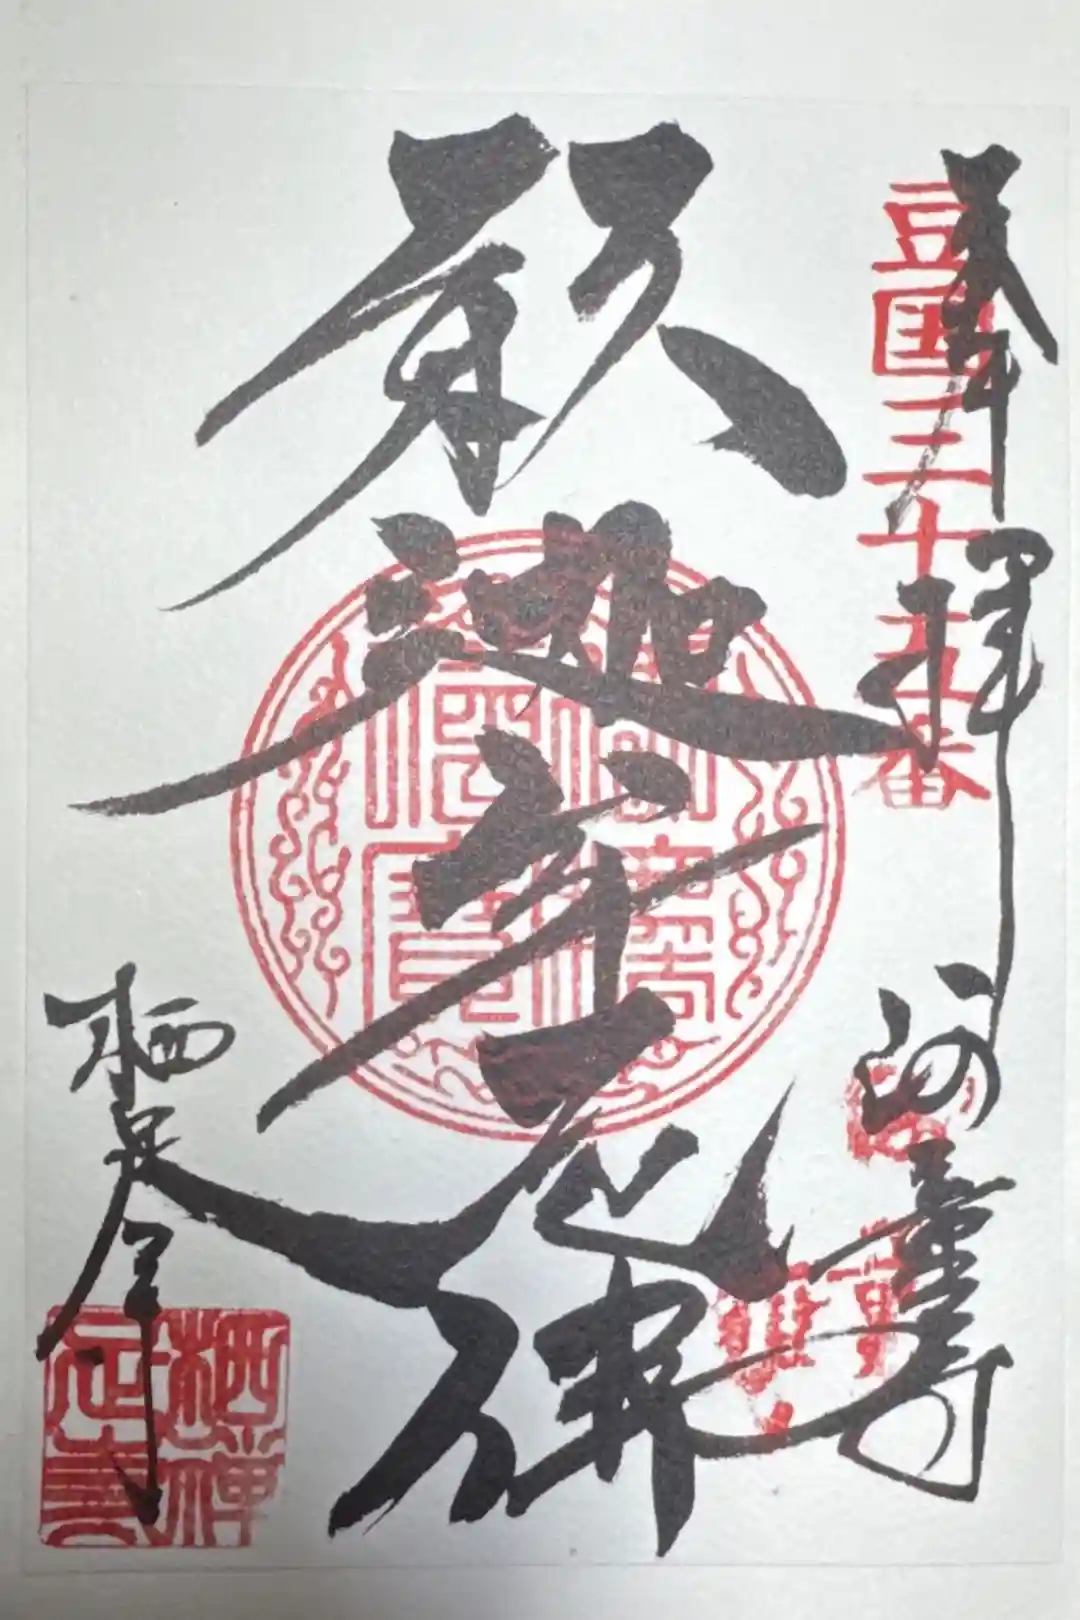 奉拝
豆国三十五番
河童寺
釈迦牟尼佛
栖足寺
栖足禅寺